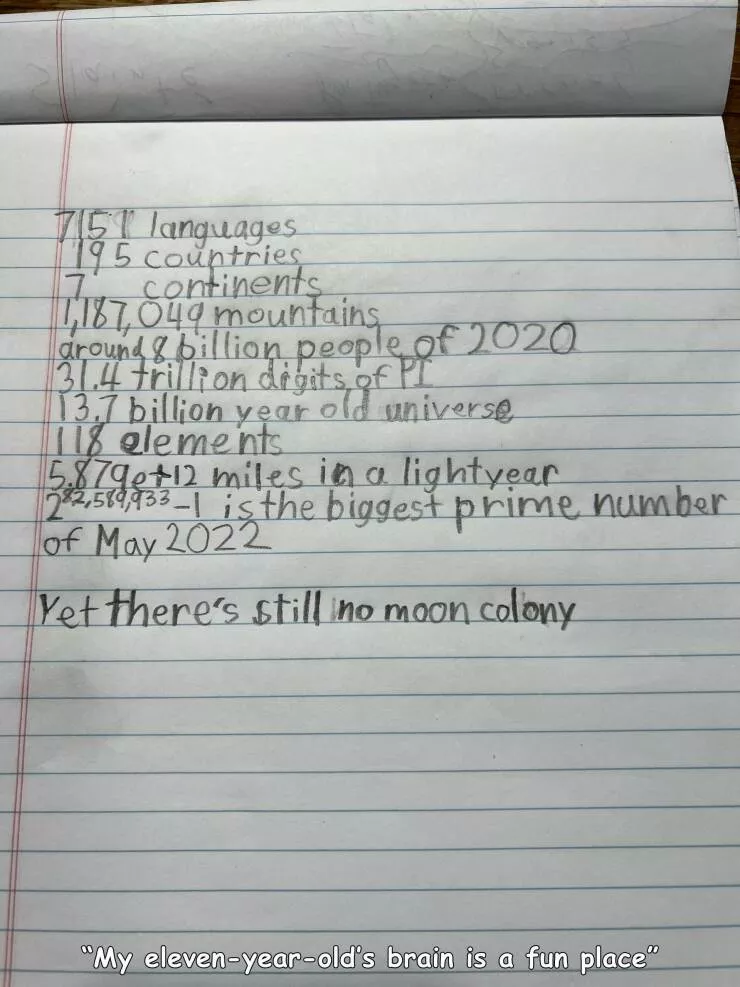 7151 languages
195 countries
7 continents
1,187,049 mountains
around 8 billion people of 2020
31.4 trillion digits of PI
13.7 billion year old universe
118 elements
5.879e+12 miles in a lightyear
2^82,589,933 -1 is the biggest prime number
of May 2022
Yet there's still no moon colony
"My eleven-year-old's brain is a fun place"